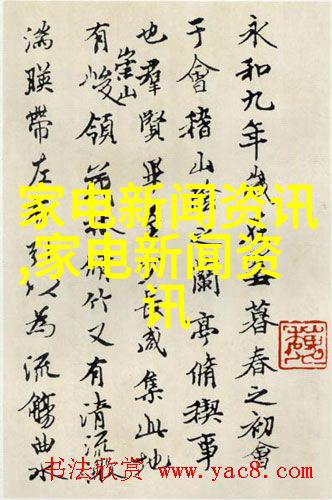 永和九年歲暮春之初會
于會稽山陰之蘭亭脩稧事
也羣賢畢長咸集此地
有崇山峻領脩竹又有清流激
湍暎帶左以為流觴曲水
家电新闻资讯
,家电新闻资
讯
书法欣赏 www.yac8.com